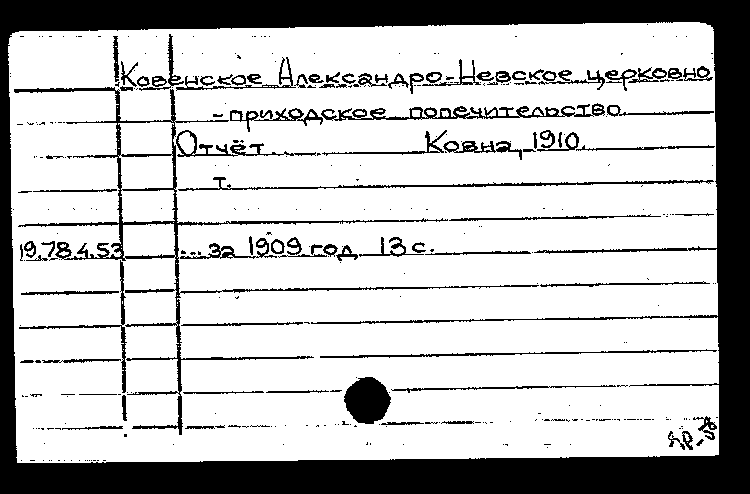 Ковенское Александро-Невское церковно
-приходское попечительство.
Отчёт... Ковна, 1910.
т.
19.78.4.53 ... за 1909 год 13 с.